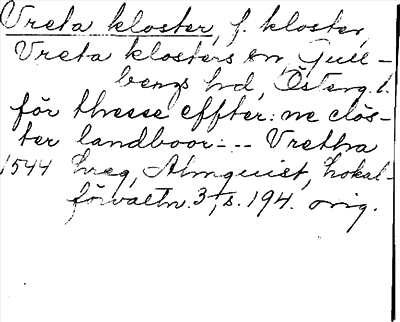 Vreta kloster, f. kloster,
Vreta klosters sn, Gull-
bergs hd, Österg. l.
för thesse effter: ne clös-
ter landboor - - - Vretha
1544 Lreg, Almquist, Lokal-
förvaltn. 3, s. 194. orig.